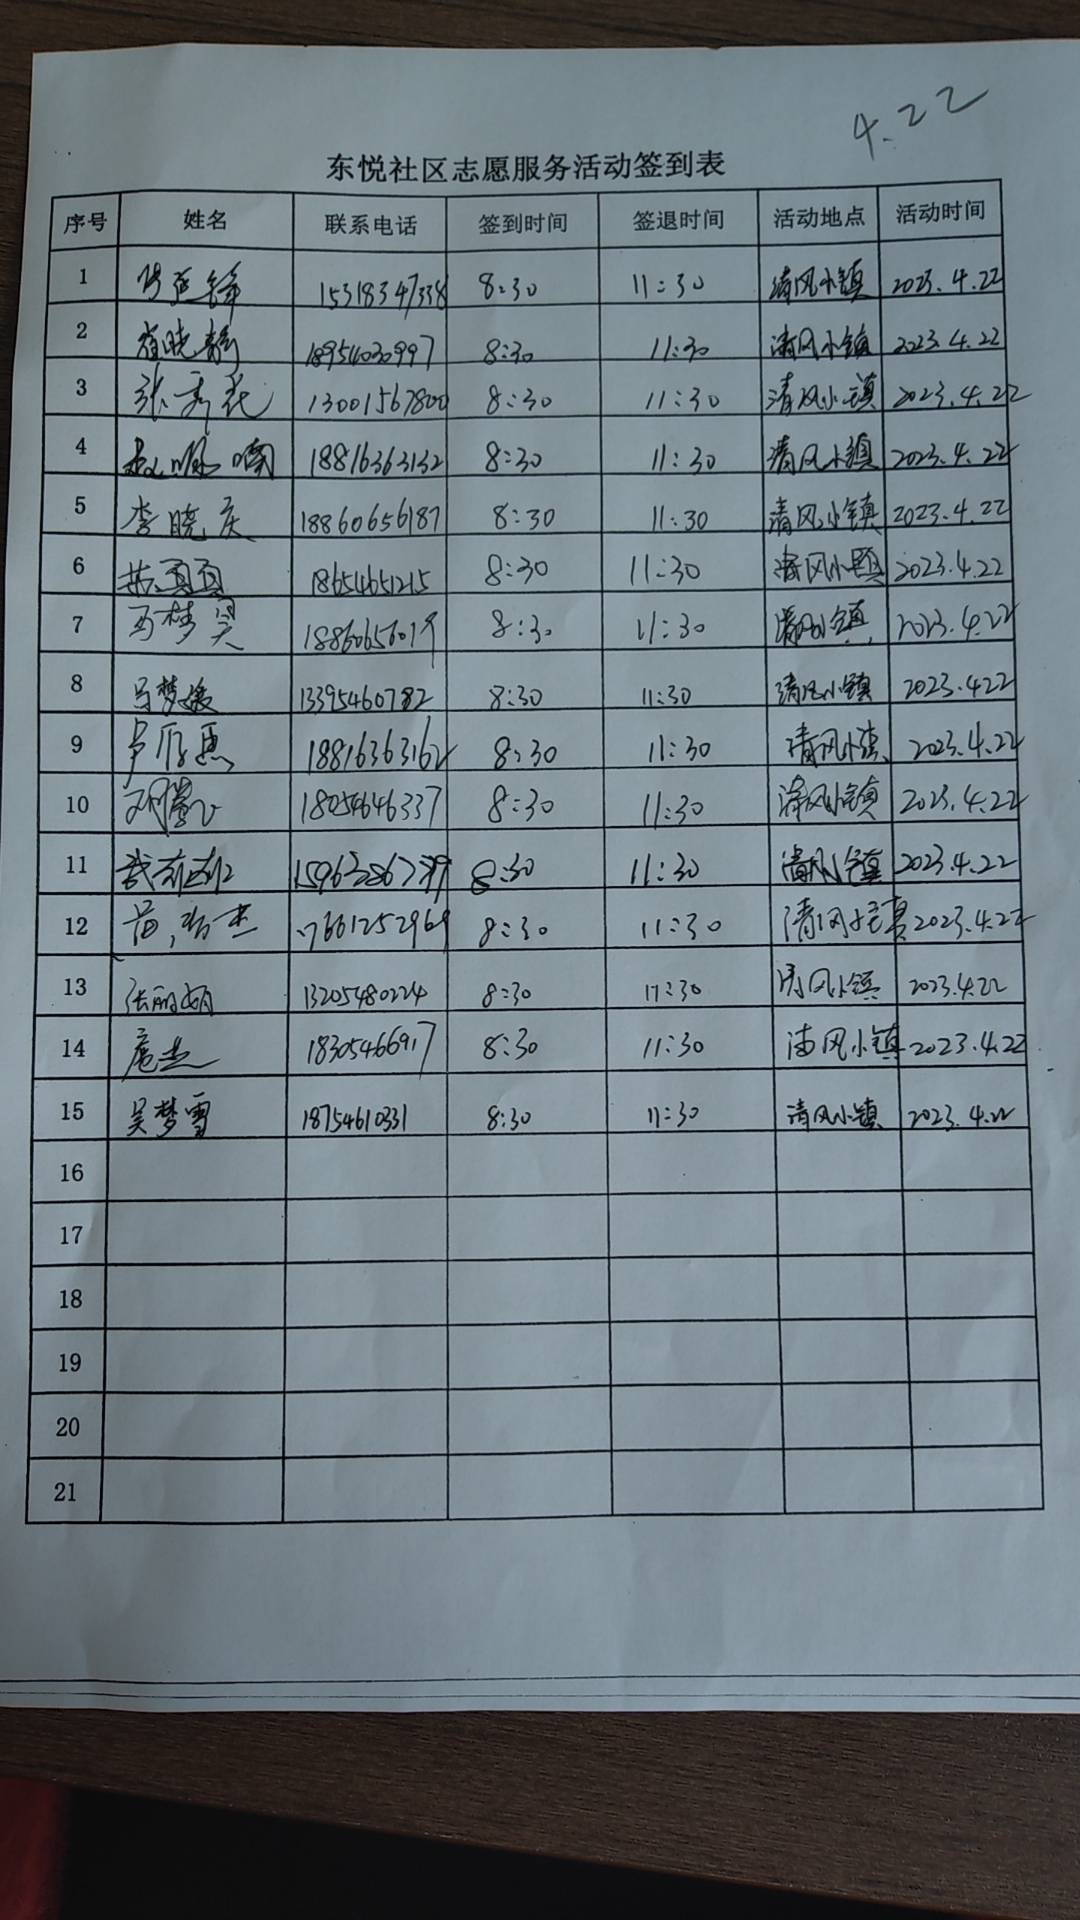 4.22
东悦社区志愿服务活动签到表
序号 姓名 联系电话 签到时间 签退时间 活动地点 活动时间
1 15318347338 8:30 11:30 清风小镇 2023.4.22
2 崔晓静 18954030997 8:30 11:30 清风小镇 2023.4.22
3 张秀花 13001567800 8:30 11:30 清风小镇 2023.4.22
4 18816363132 8:30 11:30 清风小镇 2023.4.22
5 李晓庆 18860656187 8:30 11:30 清风小镇 2023.4.22
6 18654651215 8:30 11:30 清风小镇 2023.4.22
7 8:30 11:30 清风小镇 2023.4.22
8 马梦媛 13395460782 8:30 11:30 清风小镇 2023.4.22
9 18816363162 8:30 11:30 清风小镇 2023.4.22
10 18054646337 8:30 11:30 清风小镇 2023.4.22
11 8:30 11:30 清风小镇 2023.4.22
12 17661252969 8:30 11:30 清风小镇 2023.4.22
13 张丽娟 13205480224 8:30 11:30 清风小镇 2023.4.22
14 18305466917 8:30 11:30 清风小镇 2023.4.22
15 吴梦雪 18754610331 8:30 11:30 清风小镇 2023.4.22
16
17
18
19
20
21